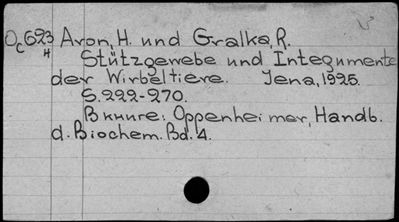 Oc623 Aron, H. und Gralka, R.
н
Stützgewebe und Integumente
der Wirbeltiere. Jena, 1925.
S. 222-270.
В книге: Oppenheimer, Handb.
d. Biochem. Bd. 4.